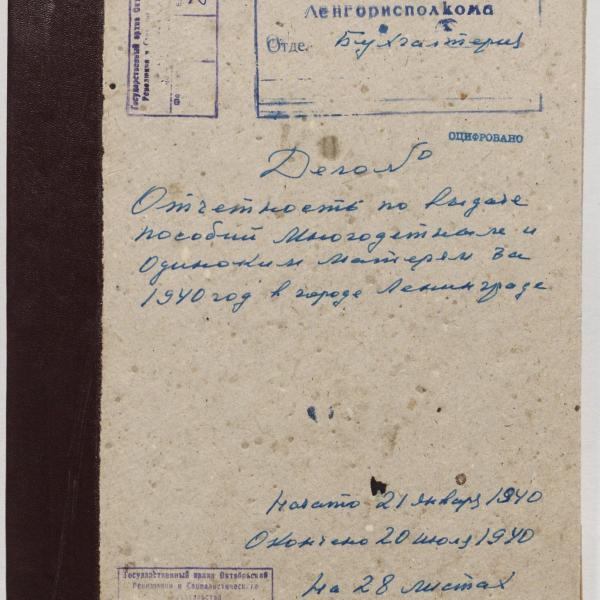 Государственный архив Окт
Ленгорисполкома
Отде. Бухгалтерия
ОЦИФРОВАНО
Дело №
Отчетность по выдаче
пособий многодетным и
одиноким матерям за
1940 год в городе Ленинграде
Начато 21 января 1940
Окончено 20 июля 1940
На 28 листах
Государственный архив Октябрьской
Революции и Социалистического